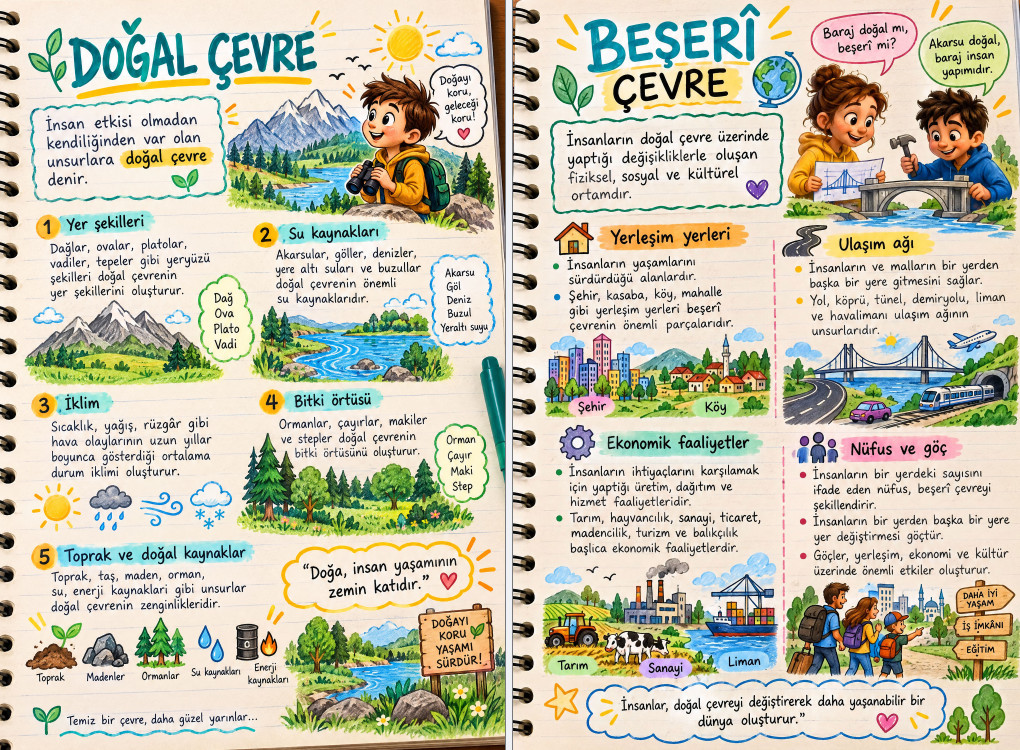 DOĞAL ÇEVRE
Doğayı
koru,
geleceği
koru!
İnsan etkisi olmadan
kendiliğinden var olan
unsurlara doğal çevre
denir.
1 Yer şekilleri
Dağlar, ovalar, platolar,
vadiler, tepeler gibi yeryüzü
şekilleri doğal çevrenin
yer şekillerini oluşturur.
Dağ
Ova
Plato
Vadi
2 Su kaynakları
Akarsular, göller, denizler,
yere altı suları ve buzullar
doğal çevrenin önemli
su kaynaklarıdır.
Akarsu
Göl
Deniz
Buzul
Yeraltı suyu
3 İklim
Sıcaklık, yağış, rüzgâr gibi
hava olaylarının uzun yıllar
boyunca gösterdiği ortalama
durum iklimi oluşturur.
4 Bitki örtüsü
Ormanlar, çayırlar, makiler
ve stepler doğal çevrenin
bitki örtüsünü oluşturur.
Orman
Çayır
Maki
Step
5 Toprak ve doğal kaynaklar
Toprak, taş, maden, orman,
su, enerji kaynakları gibi unsurlar
doğal çevrenin zenginlikleridir.
Toprak
Madenler
Ormanlar
Su kaynakları
Enerji
kaynakları
"Doğa, insan yaşamının
zemin katıdır."
DOĞAYI
KORU
YAŞAMI
SÜRDÜR!
Temiz bir çevre, daha güzel yarınlar...
BEŞERÎ
ÇEVRE
Baraj doğal mı,
beşerî mi?
Akarsu doğal,
baraj insan
yapımıdır.
İnsanların doğal çevre üzerinde
yaptığı değişikliklerle oluşan
fiziksel, sosyal ve kültürel
ortamdır.
Yerleşim yerleri
• İnsanların yaşamlarını
sürdürdüğü alanlardır.
• Şehir, kasaba, köy, mahalle
gibi yerleşim yerleri beşerî
çevrenin önemli parçalarıdır.
Şehir
Köy
Ulaşım ağı
• İnsanların ve malların bir yerden
başka bir yere gitmesini sağlar.
• Yol, köprü, tünel, demiryolu, liman
ve havalimanı ulaşım ağının
unsurlarıdır.
Ekonomik faaliyetler
• İnsanların ihtiyaçlarını karşılamak
için yaptığı üretim, dağıtım ve
hizmet faaliyetleridir.
• Tarım, hayvancılık, sanayi, ticaret,
madencilik, turizm ve balıkçılık
başlıca ekonomik faaliyetlerdir.
Tarım
Sanayi
Liman
Nüfus ve göç
• İnsanların bir yerdeki sayısını
ifade eden nüfus, beşerî çevreyi
şekillendirir.
• İnsanların bir yerden başka bir yere
yer değiştirmesi göçtür.
• Göçler, yerleşim, ekonomi ve kültür
üzerinde önemli etkiler oluşturur.
DAHA İYİ
YAŞAM
İŞ İMKÂNI
EĞİTİM
İnsanlar, doğal çevreyi değiştirerek daha yaşanabilir bir
dünya oluşturur."